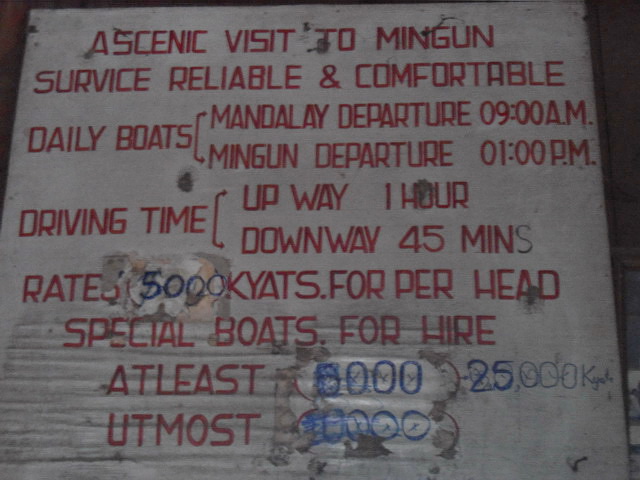 ASCENIC VISIT TO MINGUN
SERVICE RELIABLE & COMFORTABLE
DAILY BOATS MANDALAY DEPARTURE 09:00 A.M.
MINGUN DEPARTURE 01:00 P.M.
DRIVING TIME UP WAY 1 HOUR
DOWNWAY 45 MINS
RATES 5000 KYATS. FOR PER HEAD
SPECIAL BOATS. FOR HIRE
ATLEAST 25,000 Kyats
UTMOST